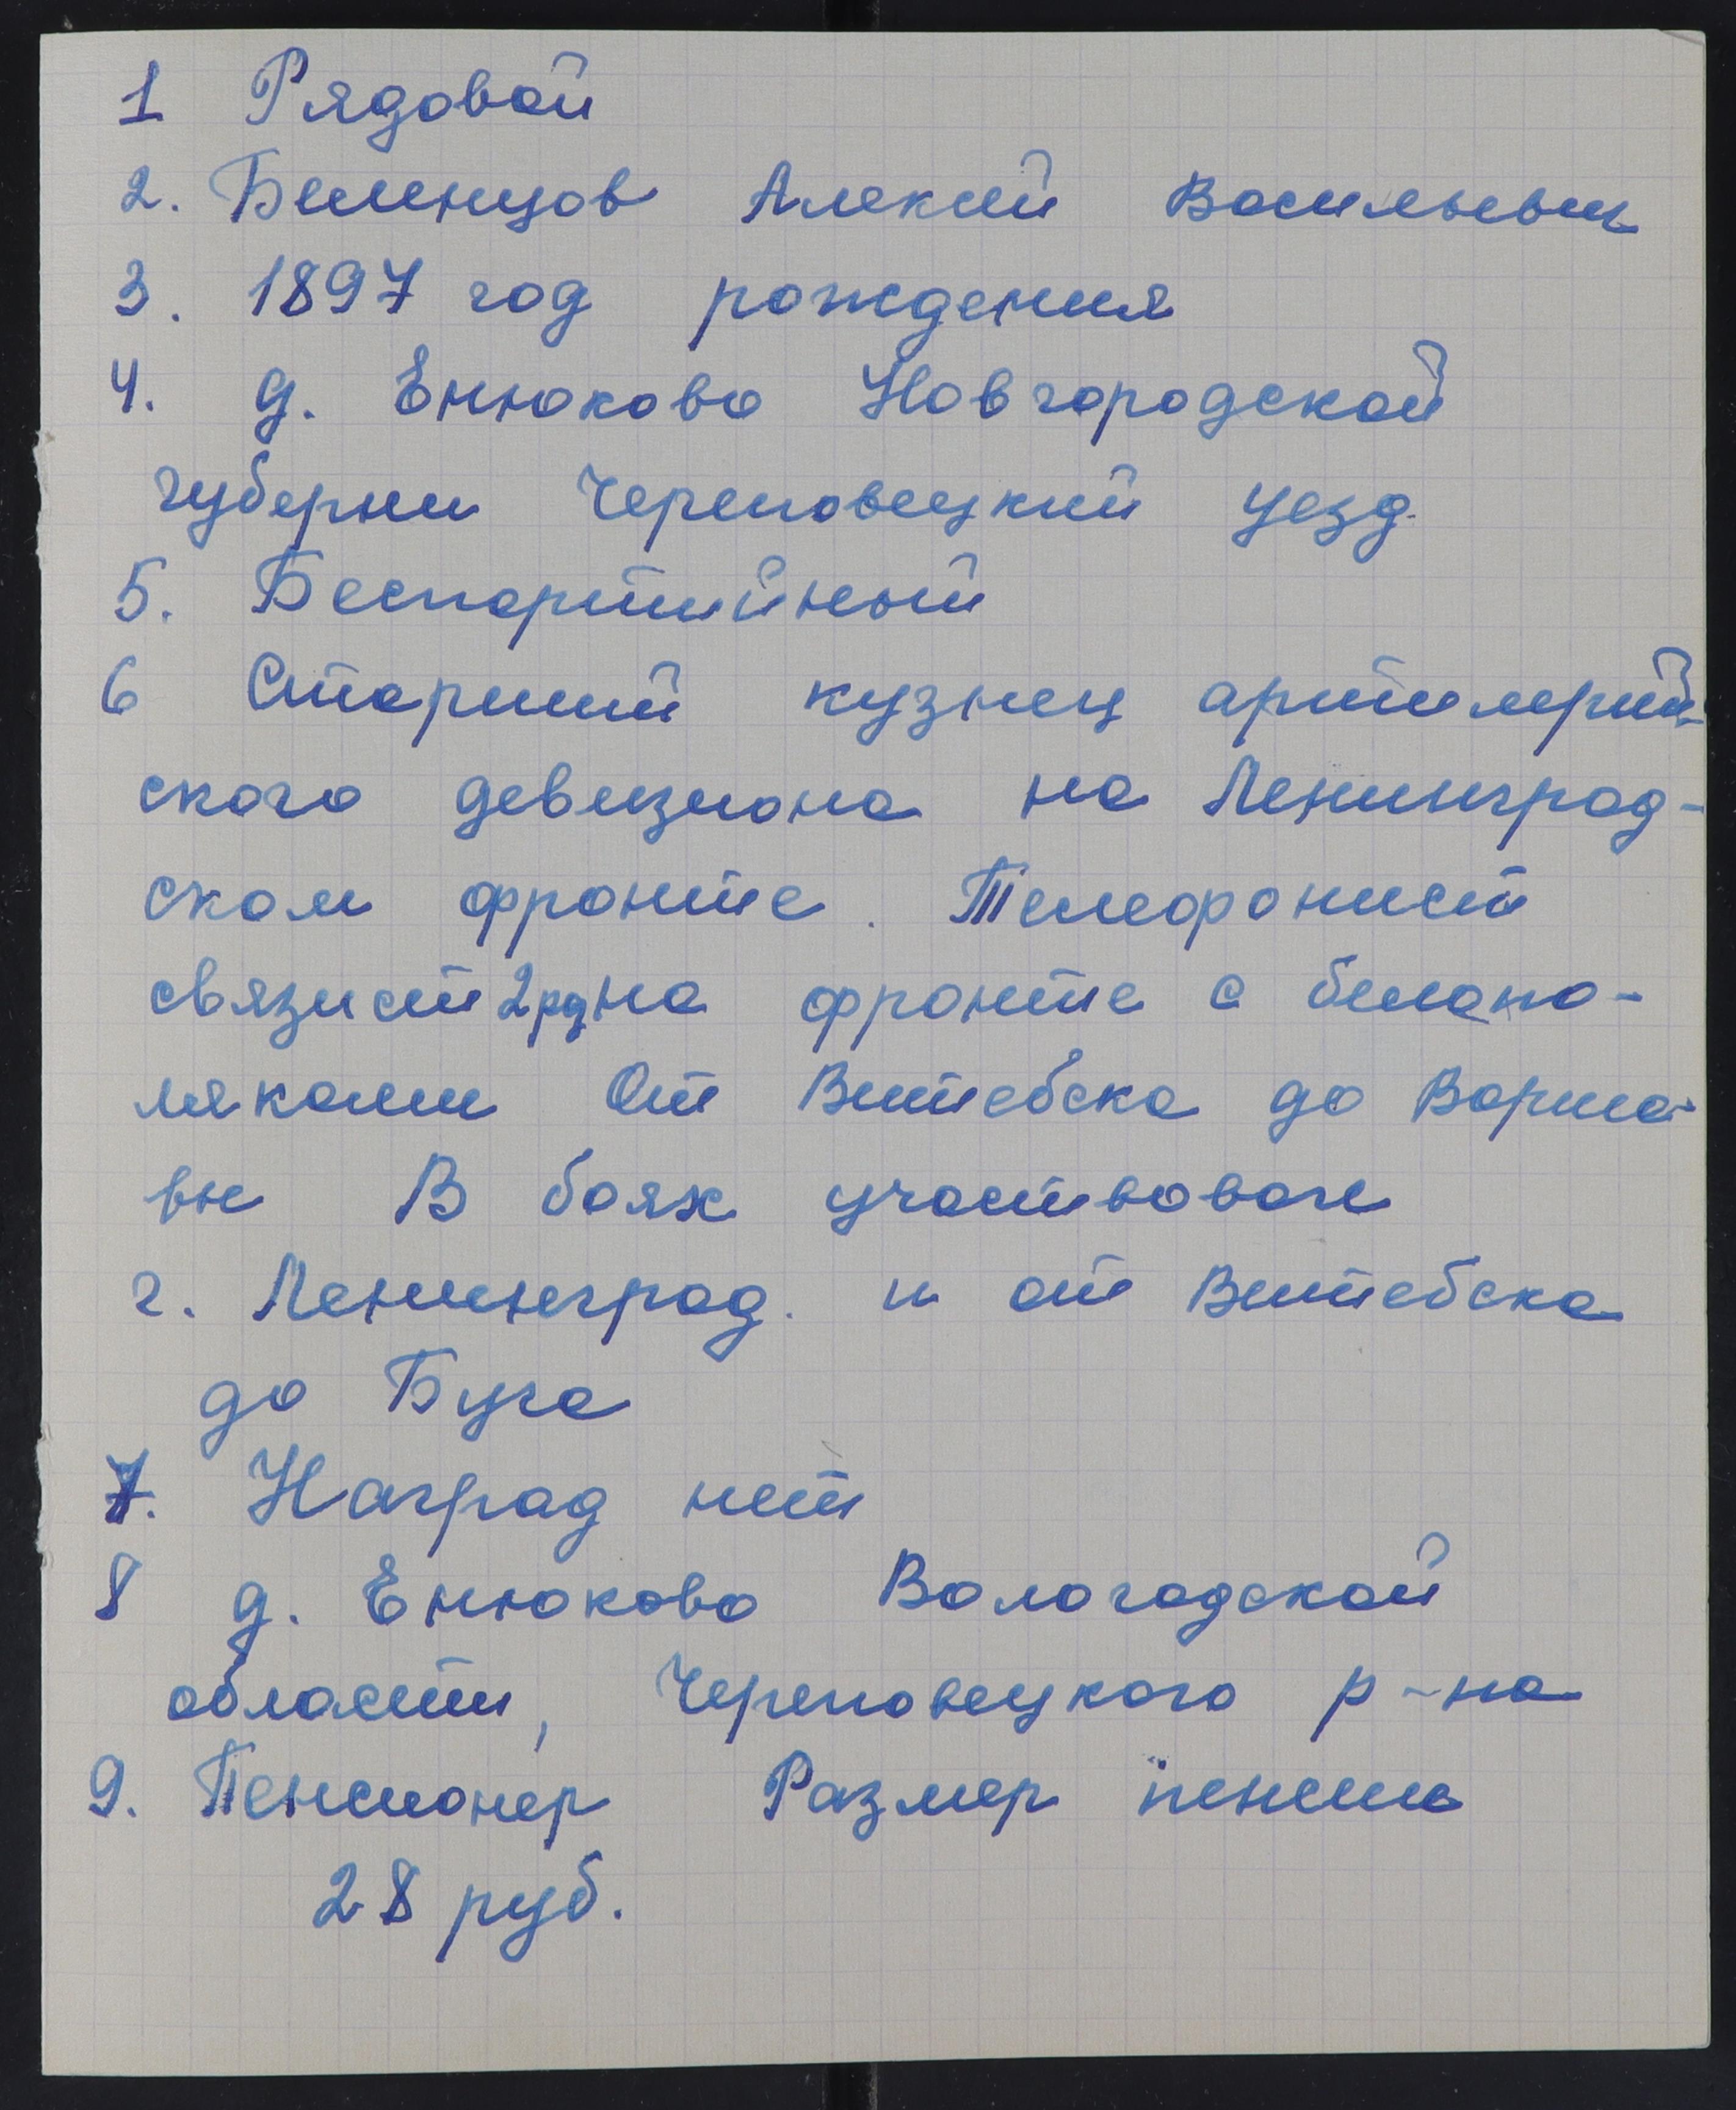 1 Рядовой
2. Беленцов Алексей Васильевич
3. 1897 год рождения
4. д. Енюково Новгородской
губерни Череповецкий уезд.
5. Беспартийный
6 Старший кузнец артилерий-
ского девизиона на Ленинград-
ском фронте. Телефонист
связист 2 рд на фронте с белопо-
ляками От Витебска до Варша-
вы В боях участвовал
г. Ленинград. и от Витебска
до Буга
7. Наград нет
8 д. Енюково Вологодской
области, Череповецкого р-на
9. Пенсионер Размер пенсии
28 руб.